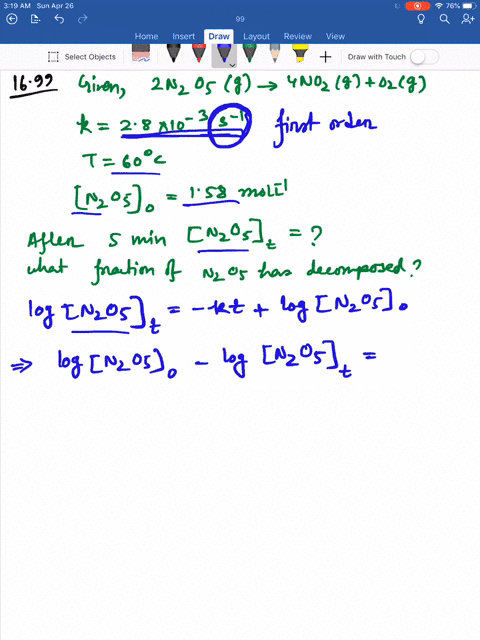 3:19 AM Sun Apr 26
76%
99
Home Insert Draw Layout Review View
Select Objects
Draw with Touch
16.99 Given, 2N2O5 (g) → 4NO2 (g) + O2 (g)
k = 2.8 × 10⁻³ s⁻¹ first order
T = 60°C
[N2O5]₀ = 1.58 mol L⁻¹
After 5 min [N2O5]ₜ = ?
what fraction of N2O5 has decomposed?
log [N2O5]ₜ = -kt + log [N2O5]₀
⇒ log [N2O5]₀ - log [N2O5]ₜ =